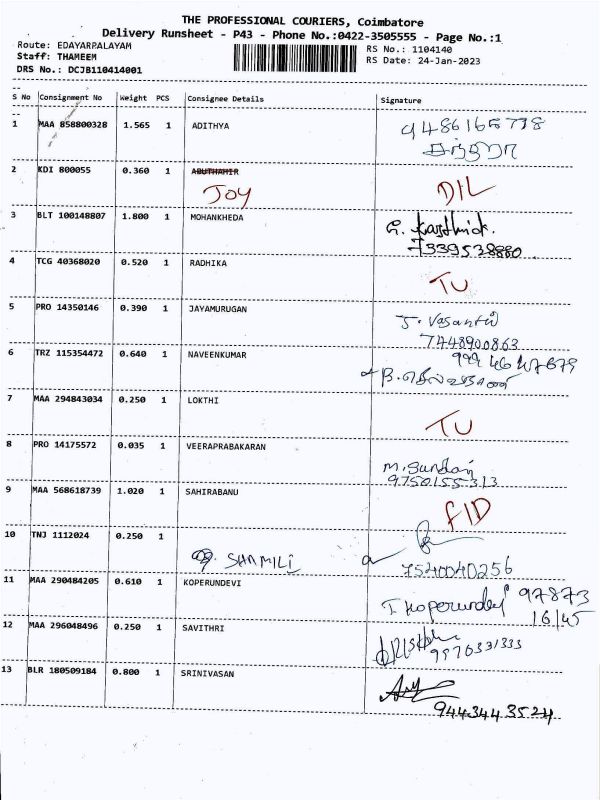 THE PROFESSIONAL COURIERS, Coimbatore
Delivery Runsheet - P43 - Phone No.:0422-3505555 - Page No.:1
Route: EDAYARPALAYAM RS No.: 1104140
Staff: THAMEEM RS Date: 24-Jan-2023
DRS No.: DCJB110414001
S No Consignment No Weight PCS Consignee Details Signature
1 MAA 858800328 1.565 1 ADITHYA
2 KDI 800055 0.360 1 ABUTHAMIR
JOY DIL
3 BLT 100148807 1.800 1 MOHANKHEDA
7339538880
4 TCG 40368020 0.520 1 RADHIKA
TU
5 PRO 14350146 0.390 1 JAYAMURUGAN
J. Vasanthi
7448900863
6 TRZ 115354472 0.640 1 NAVEENKUMAR
7 MAA 294843034 0.250 1 LOKTHI
TU
8 PRO 14175572 0.035 1 VEERAPRABAKARAN
9750155313
9 MAA 568618739 1.020 1 SAHIRABANU
FID
10 TNJ 1112024 0.250 1
SHAMILI 7540040256
11 MAA 290484205 0.610 1 KOPERUNDEVI
97873
16145
12 MAA 296048496 0.250 1 SAVITHRI
13 BLR 180509184 0.800 1 SRINIVASAN
9443443524